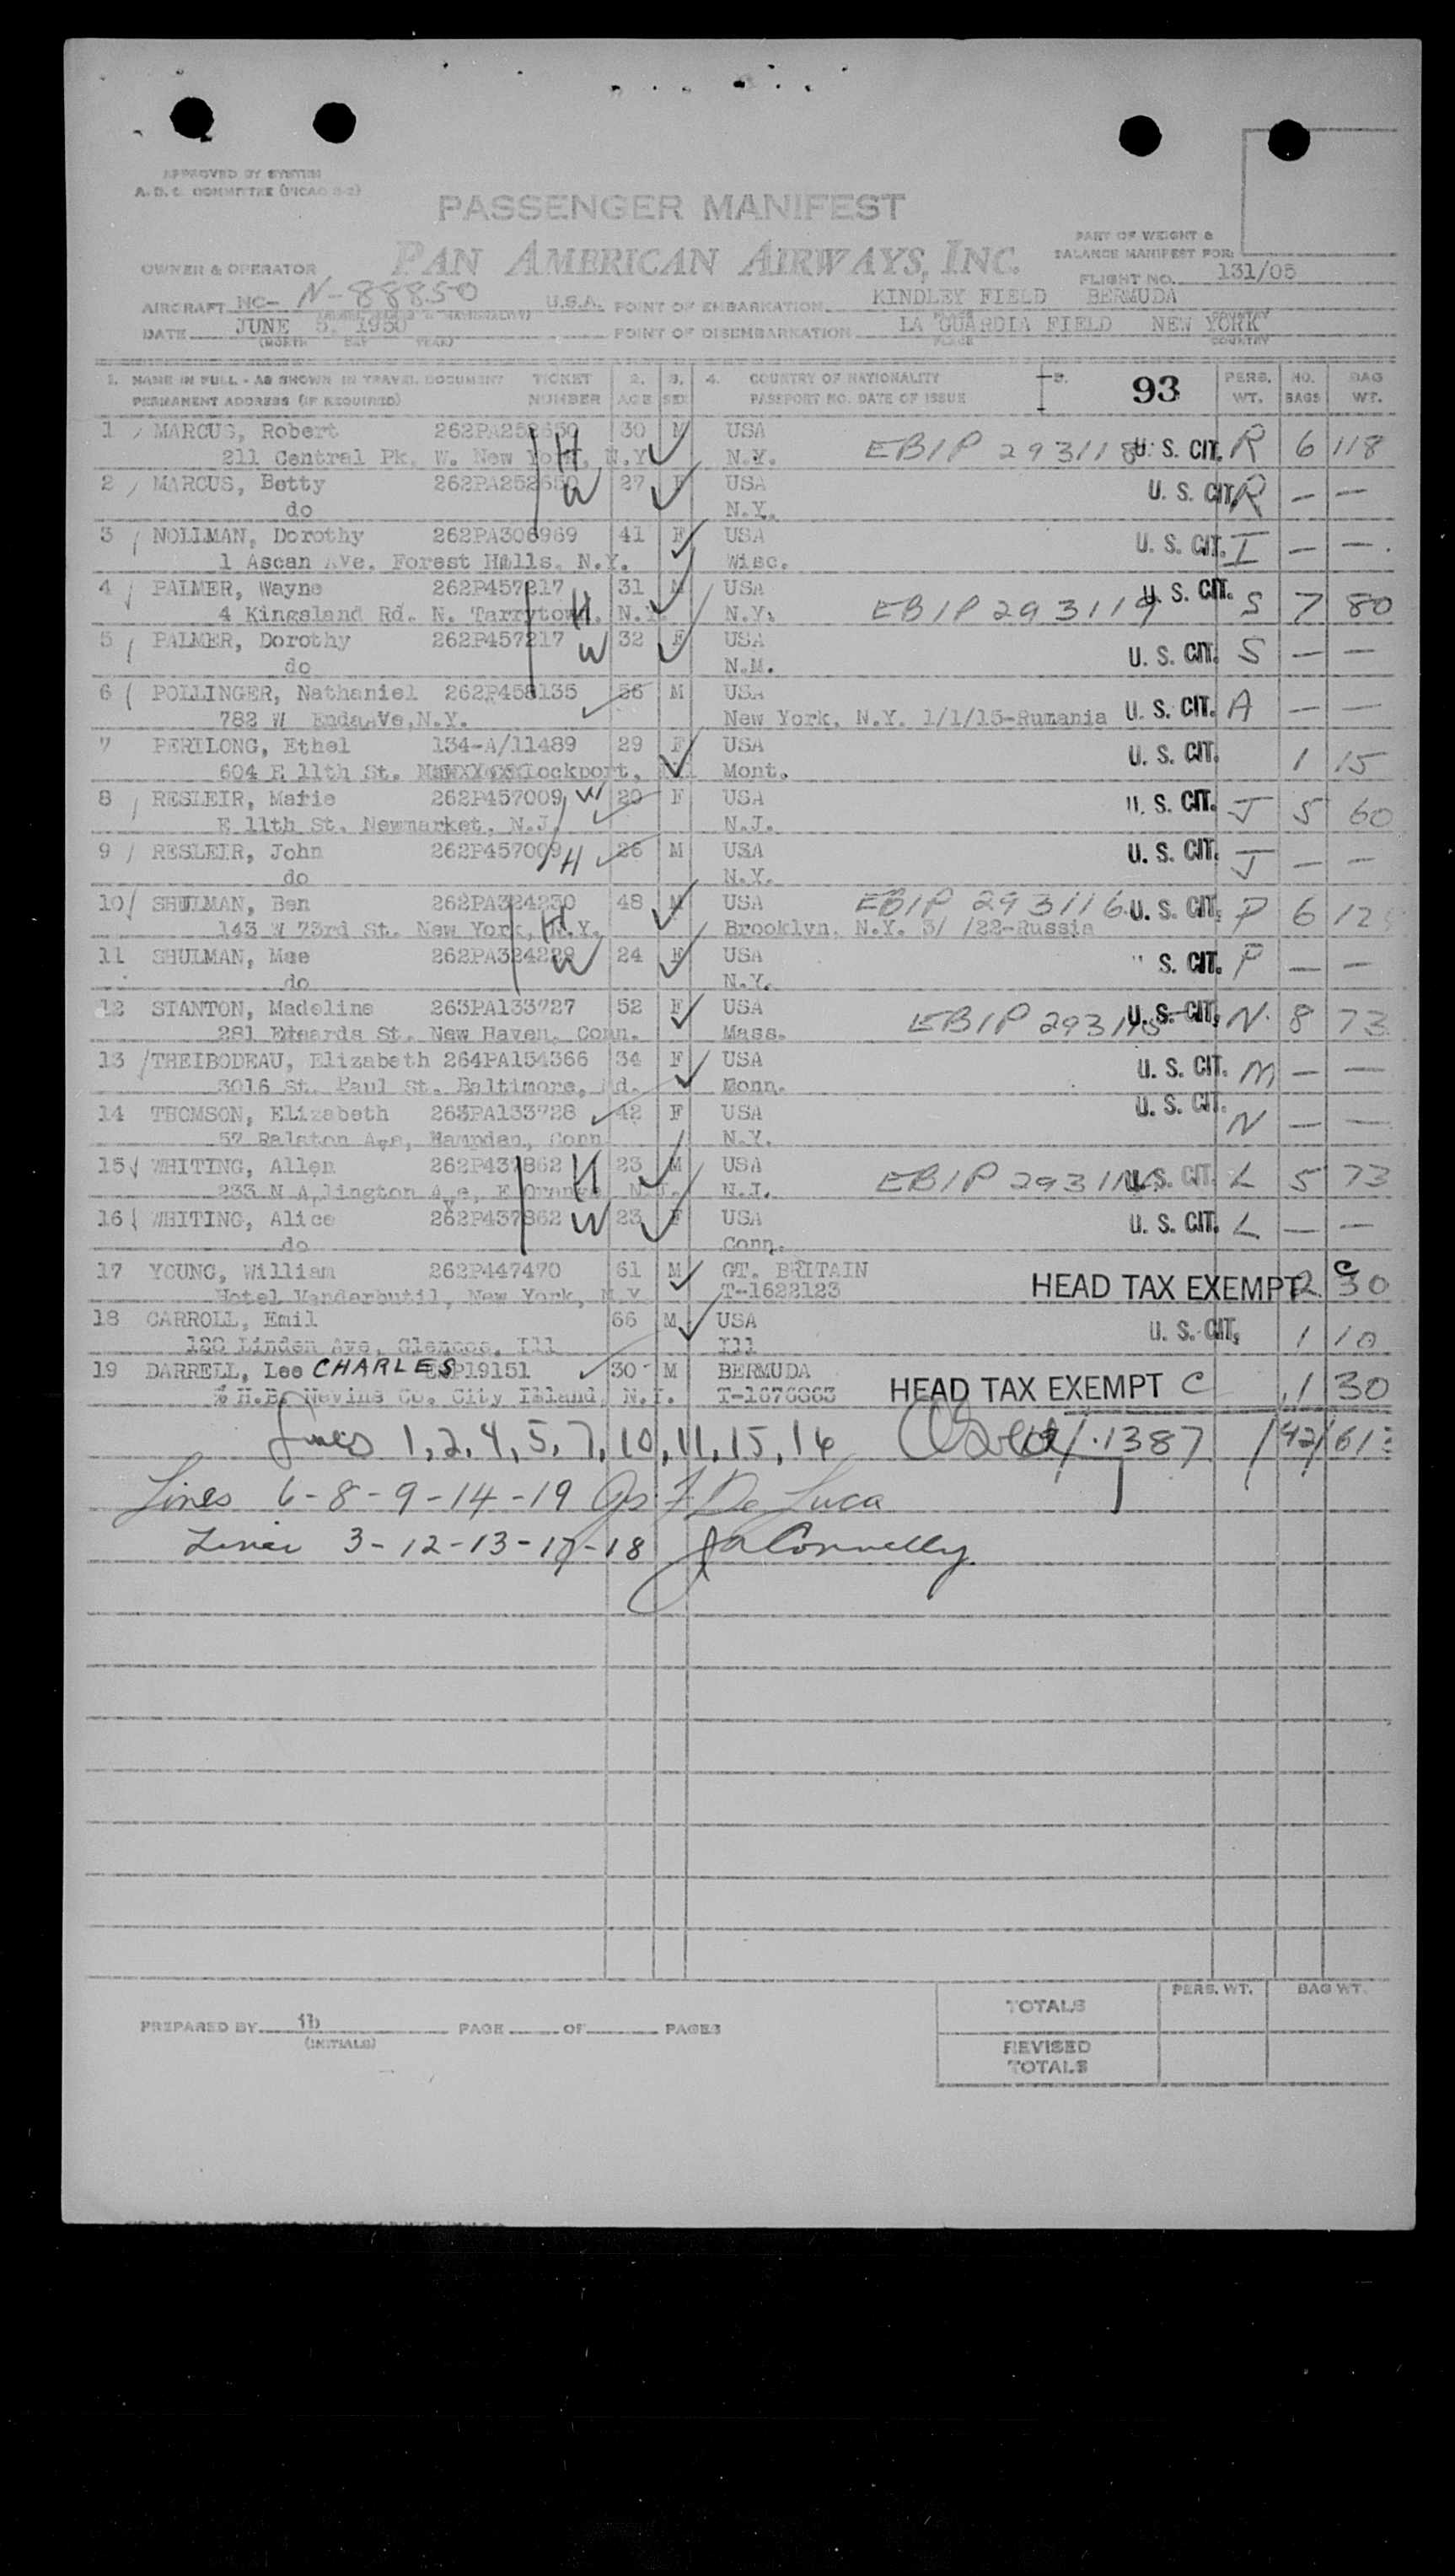 APPROVED BY SYSTEM
A. D. C. COMMITTEE (PICAO 3-2)
PASSENGER MANIFEST
PAN AMERICAN AIRWAYS, INC.
PART OF WEIGHT &
BALANCE MANIFEST FOR:
OWNER & OPERATOR
FLIGHT NO. 131/05
AIRCRAFT NC- N-88850 U.S.A. POINT OF EMBARKATION KINDLEY FIELD BERMUDA
DATE JUNE 5, 1950 POINT OF DISEMBARKATION LA GUARDIA FIELD NEW YORK
(MONTH DAY YEAR) PLACE COUNTRY
1. NAME IN FULL - AS SHOWN IN TRAVEL DOCUMENT TICKET 2. 3. 4. COUNTRY OF NATIONALITY 5. 93 PERS. NO. BAG
PERMANENT ADDRESS (IF REQUIRED) NUMBER AGE SEX PASSPORT NO. DATE OF ISSUE WT. BAGS WT.
1 MARCUS, Robert 262PA252650 30 M USA
211 Central Pk. W. New York, N.Y. H N.Y. EBIP 293118 U. S. CIT. R 6 118
2 MARCUS, Betty 262PA252650 W 27 F USA U. S. CIT. R — —
do N.Y.
3 NOLLMAN, Dorothy 262PA306969 41 F USA U. S. CIT. I — —
1 Ascan AVe. Forest Hills, N.Y. Wisc.
4 PALMER, Wayne 262P457217 31 M USA U. S. CIT.
4 Kingsland Rd. N. Tarrytown, N.Y. H N.Y. EBIP 293119 S 7 80
5 PALMER, Dorothy 262P457217 W 32 F USA U. S. CIT. S — —
do N.M.
6 POLLINGER, Nathaniel 262P458135 56 M USA
782 W End AVe, N.Y. New York, N.Y. 1/1/15-Rumania U. S. CIT. A — —
7 PERILONG, Ethel 134-A/11489 29 F USA U. S. CIT. 1 15
604 E 11th St. Lockport, Mont.
8 RESLEIR, Marie 262P457009 W 20 F USA U. S. CIT. J 5 60
E 11th St. Newmarket, N.J. N.J.
9 RESLEIR, John 262P457009 H 26 M USA U. S. CIT. J — —
do N.Y.
10 SHULMAN, Ben 262PA324230 48 M USA EBIP 293116 U. S. CIT. P 6
143 W 73rd St. New York, N.Y. H Brooklyn, N.Y. 3/ /22-Russia
11 SHULMAN, Mae 262PA324229 W 24 F USA S. CIT. P — —
do N.Y.
12 STANTON, Madeline 263PA133727 52 F USA EBIP 293115 U. S. CIT. N. 8 73
281 Edwards St. New Haven, Conn. Mass.
13 THEIBODEAU, Elizabeth 264PA154366 34 F USA U. S. CIT. M — —
3016 St. Paul St. Baltimore, Md.
14 THOMSON, Elizabeth 263PA133728 42 F USA U. S. CIT. N — —
57 Ralston Ave, Hampden, Conn N.Y.
15 WHITING, Allen 262P437862 H 23 M USA
233 N Arlington Ave, E Orange N.J. N.J. EBIP U. S. CIT. L 5 73
16 WHITING, Alice 262P437862 W 23 F USA U. S. CIT. L — —
do Conn.
17 YOUNG, William 262P447470 61 M GT. BRITAIN C
Hotel Vanderbutil, New York, N.Y. T-1622123 HEAD TAX EXEMPT 2 30
18 CARROLL, Emil 66 M USA U. S. CIT. 1 10
180 Linden Ave, Glencoe, Ill Ill
19 DARRELL, Lee CHARLES 19151 30 M BERMUDA
% H.B. Nevins Co. City Island, N.Y. T-1676863 HEAD TAX EXEMPT C 1 30
Lines 1, 2, 4, 5, 7, 10, 11, 15, 16 1387
Lines 6-8-9-14-19 De Luca
Lines 3-12-13-17-18 Connelly
PREPARED BY ib PAGE OF PAGES
(INITIALS)
PERS. WT. BAG WT.
TOTALS
REVISED
TOTALS